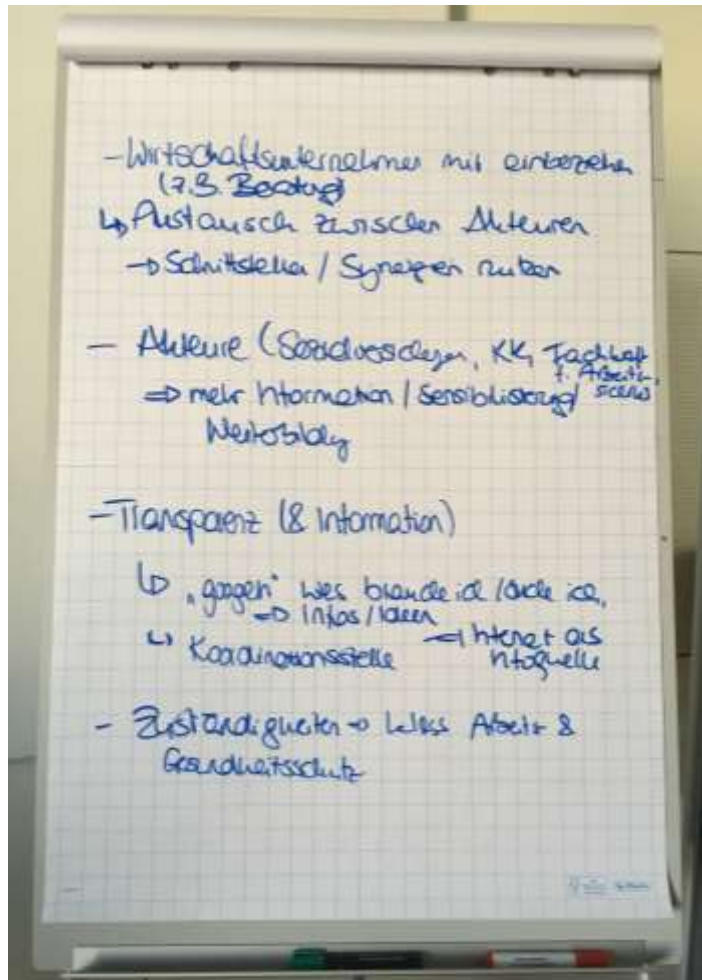 - Wirtschaftsunternehmen mit einbeziehen
(z.B. Beratung)
↳ Austausch zwischen Akteuren
→ Schnittstellen / Synergien nutzen
- Akteure (Sozialversicherungen, KK, Fachkraft
f. Arbeits-
⇒ mehr Information / Sensibilisierung /
Weiterbildung
- Transparenz (& Information)
↳ „googeln" was brauche ich / ich,
⇒ Infos / Ideen
↳ Koordinationsstelle
Internet als
Infoquelle
- Zuständigkeiten → Arbeit &
Gesundheitsschutz